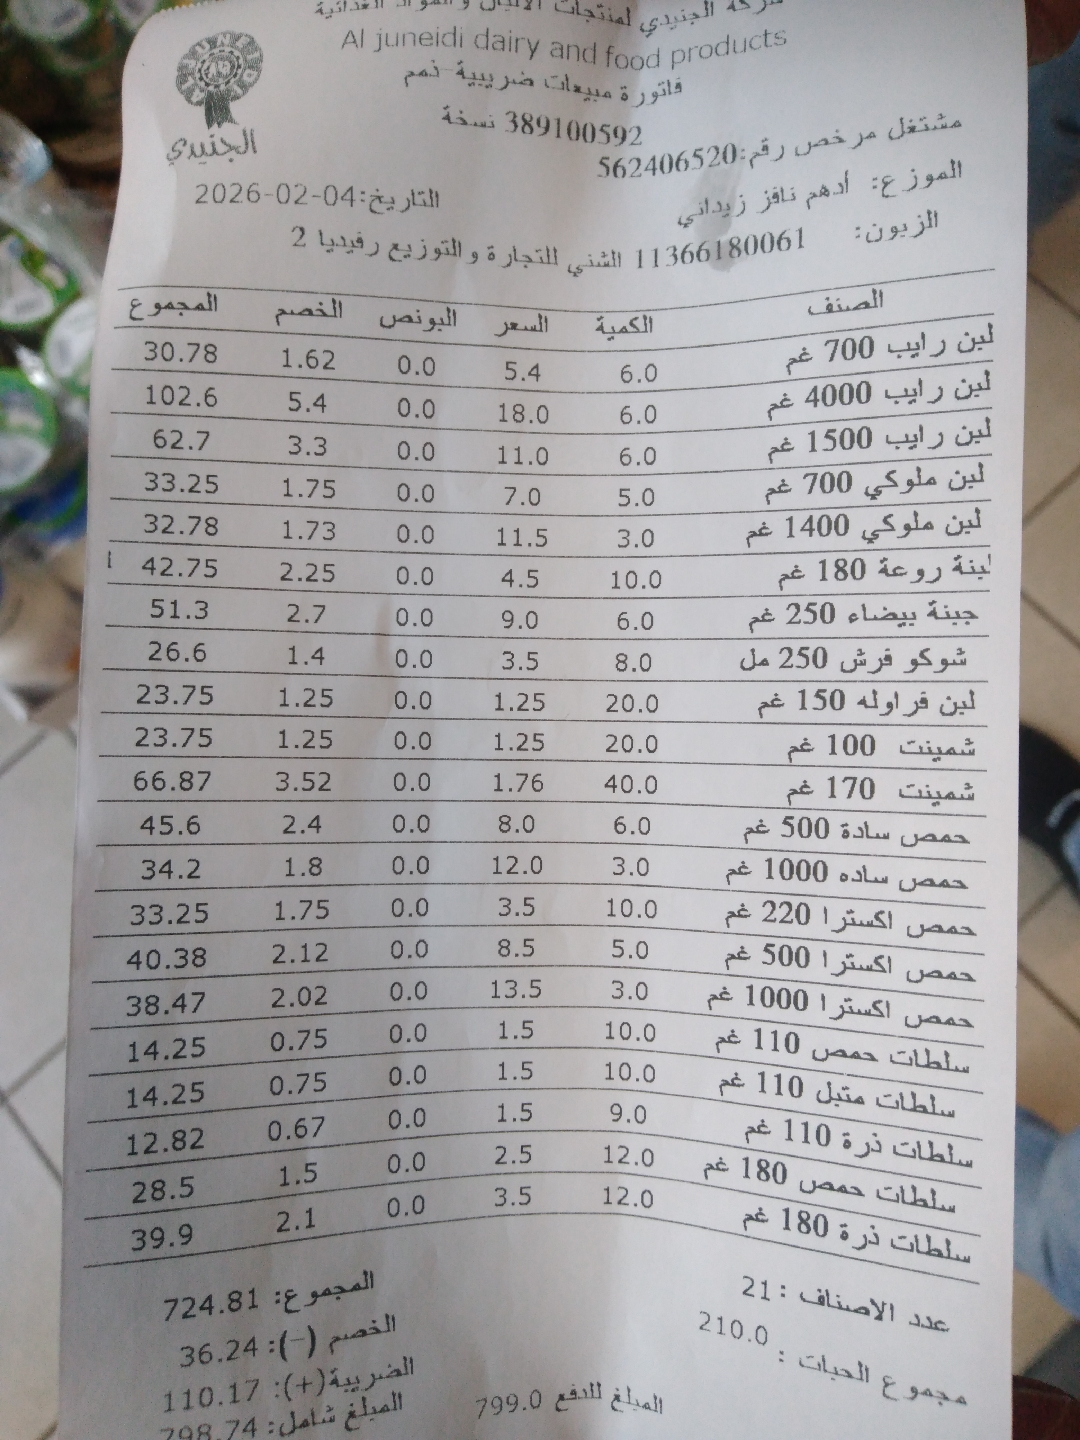 شركة الجنيدي لمنتجات الألبان والمواد الغذائية
Al juneidi dairy and food products
الجنيدي
فاتورة مبيعات ضريبية-ذمم
389100592 نسخة
مشتغل مرخص رقم:562406520
التاريخ:2026-02-04
الموزع: أدهم نافز زيداني
الزبون: 11366180061 الشني للتجارة والتوزيع رفيديا 2
الصنف الكمية السعر البونص الخصم المجموع
لبن رايب 700 غم 6.0 5.4 0.0 1.62 30.78
لبن رايب 4000 غم 6.0 18.0 0.0 5.4 102.6
لبن رايب 1500 غم 6.0 11.0 0.0 3.3 62.7
لبن ملوكي 700 غم 5.0 7.0 0.0 1.75 33.25
لبن ملوكي 1400 غم 3.0 11.5 0.0 1.73 32.78
لبنة روعة 180 غم 10.0 4.5 0.0 2.25 42.75
جبنة بيضاء 250 غم 6.0 9.0 0.0 2.7 51.3
شوكو فرش 250 مل 8.0 3.5 0.0 1.4 26.6
لبن فراوله 150 غم 20.0 1.25 0.0 1.25 23.75
شمينت 100 غم 20.0 1.25 0.0 1.25 23.75
شمينت 170 غم 40.0 1.76 0.0 3.52 66.87
حمص سادة 500 غم 6.0 8.0 0.0 2.4 45.6
حمص ساده 1000 غم 3.0 12.0 0.0 1.8 34.2
حمص اكسترا 220 غم 10.0 3.5 0.0 1.75 33.25
حمص اكسترا 500 غم 5.0 8.5 0.0 2.12 40.38
حمص اكسترا 1000 غم 3.0 13.5 0.0 2.02 38.47
سلطات حمص 110 غم 10.0 1.5 0.0 0.75 14.25
سلطات متبل 110 غم 10.0 1.5 0.0 0.75 14.25
سلطات ذرة 110 غم 9.0 1.5 0.0 0.67 12.82
سلطات حمص 180 غم 12.0 2.5 0.0 1.5 28.5
سلطات ذرة 180 غم 12.0 3.5 0.0 2.1 39.9
عدد الاصناف : 21
المجموع: 724.81
مجموع الحبات : 210.0
الخصم (-): 36.24
الضريبة(+): 110.17
المبلغ للدفع 799.0
المبلغ شامل: 798.74